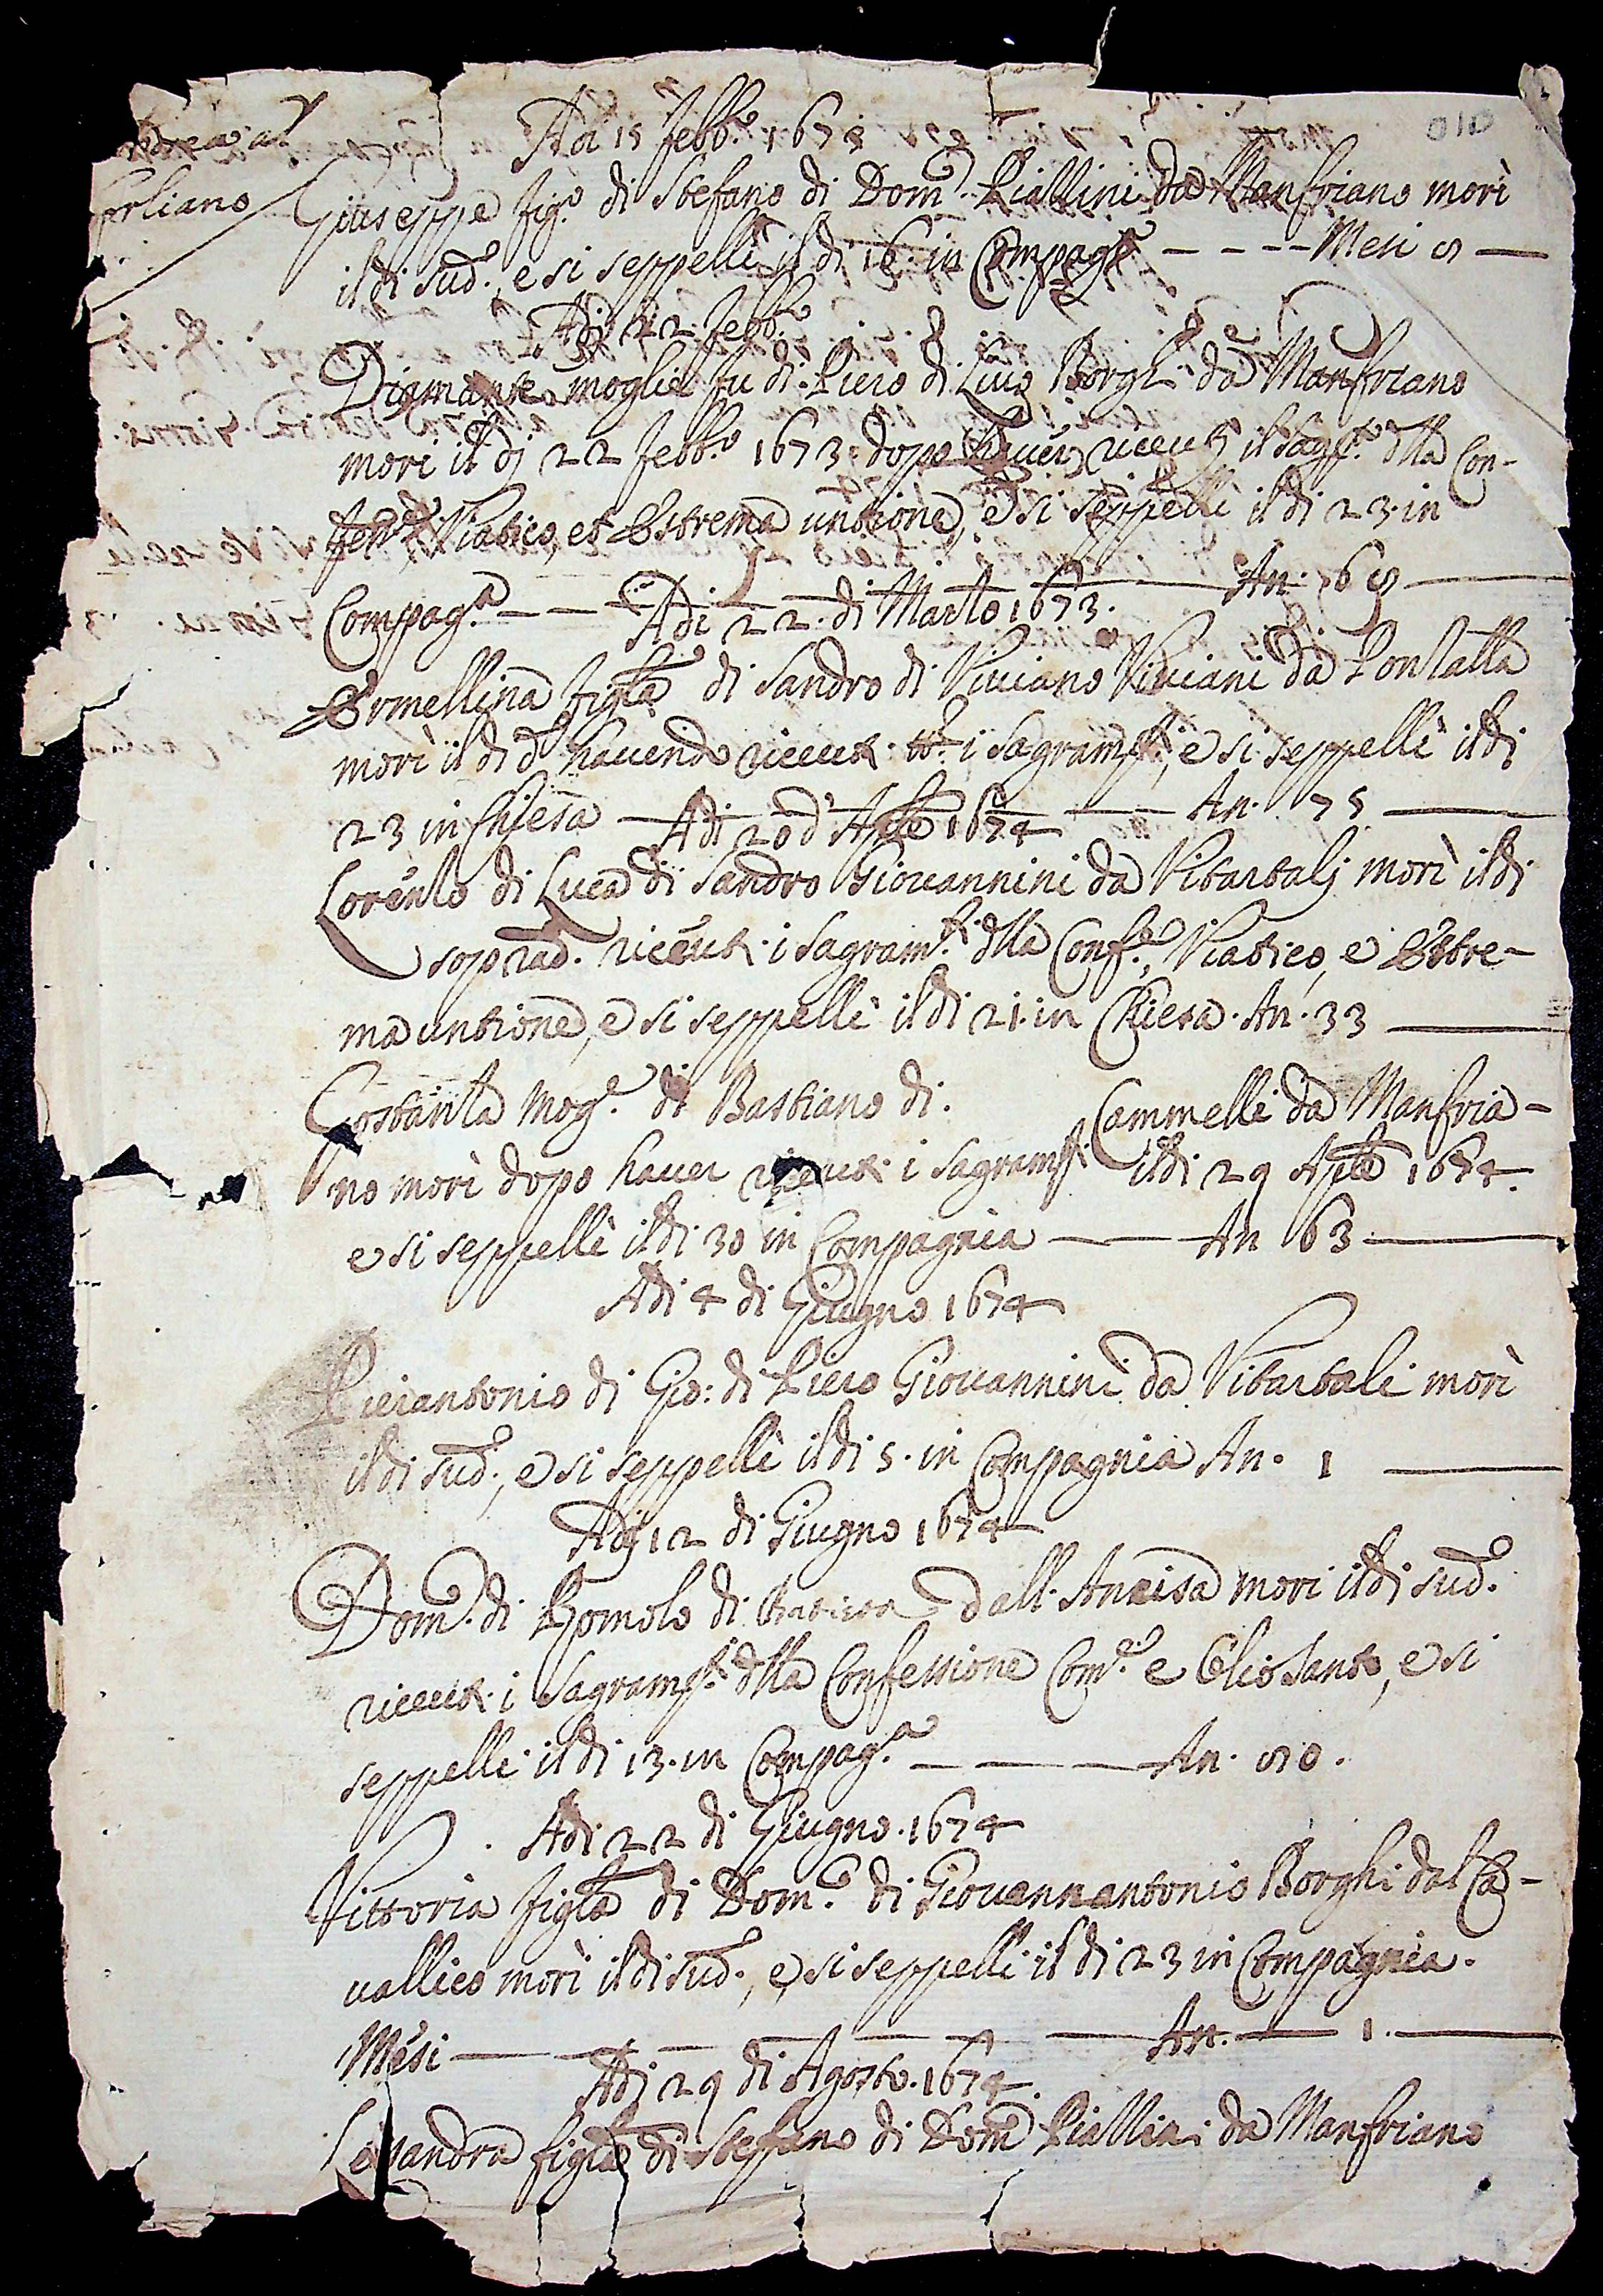 010
Adi 15 febb.º 1673
Giuseppe fig.º di Stefano di Dom.º Piallini da Manfriano morì
il di sud.º, e si seppellì il di 16. in Compag.ª - - - - Mesi 8 —
Adj 22. febb.º
Diamante moglie fu di Piero di Lino Borghi da Manfriano
morì il dj 22 febb.º 1673. dopo haver riceuti il Sagr.to dlla Con-
fess.e, Viatico, et Estrema untione, e si seppellì il di 23. in
Compag.ª — — — An. 68 —
Adi 22. di Marzo 1673.
Ermellina figla di Sandro di Viviano Viviani da Pontalla
morì il di dº havendo riceuti tt.i i Sagram.ti, e si seppellì il di
23 in Chiesa — — An. 75 —
Adi 20 d'Aple 1674
Lorenzo di Luca di Sandro Giovannini da Vitartalj morì il di
soprad. riceuti i Sagram.ti dlla Conf.e, Viatico, e Estre-
ma untione, e si seppellì il di 21. in Chiesa. An. 33 —
Costanza mog.e di Bastiano di. Cammelli da Manfria-
no morì dopo haver riceuti i Sagram.ti il di 29 Aple 1674.
e si seppellì il di 30 in Compagnia — — An 63 —
Adi 4 di Giugno 1674
Pierantonio di Gio: di Piero Giovannini da Vitartali morì
il di sud.º, e si seppellì il di 5. in Compagnia An. 1 —
Adj 12 di Giugno 1674
Dom.º di Romolo di Batista dall. Ancisa morì il di sud.º
riceuti i Sagram.ti dlla Confessione Com.e e Olio Santo, e si
seppellì il di 13. in Compag.ª — — — An. 80.
Adi 22 di Giugno. 1674
Vittoria figla di Dom.º di Giovannantonio Borghi dal Ca-
vallico morì il di sud.º, e si seppellì il di 23 in Compagnia.
Mesi — — — — An. — 1. —
Adj 29 di Agosto. 1674.
Lessandra figla di Stefano di Dom.º Piallini da Manfriano